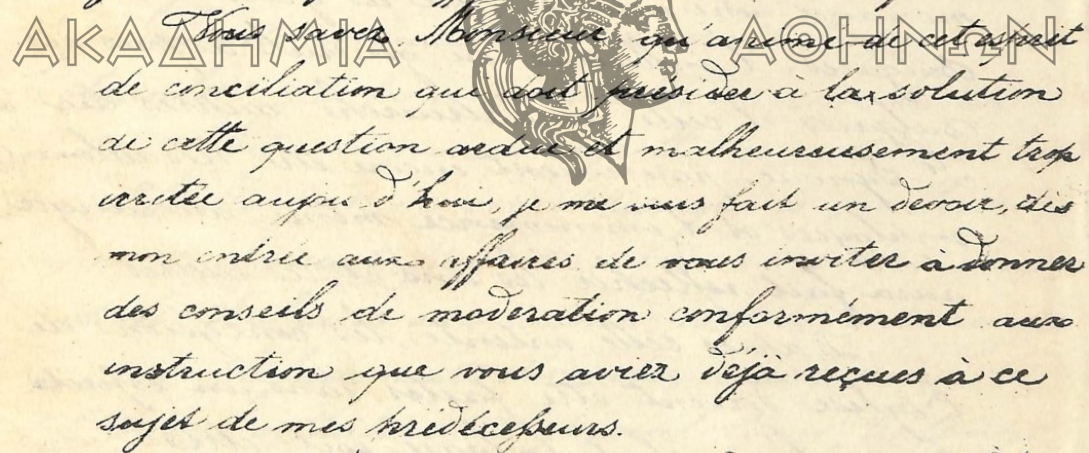 ΑΚΑΔΗΜΙΑ ΑΘΗΝΩΝ
Vous savez, Monsieur qu'animé de cet esprit
de conciliation qui doit présider à la solution
de cette question ardue et malheureusement trop
irritée aujourd'hui, je me suis fait un devoir, dès
mon entrée aux affaires de vous inviter à donner
des conseils de modération conformément aux
instruction que vous aviez déjà reçues à ce
sujet de mes prédécesseurs.